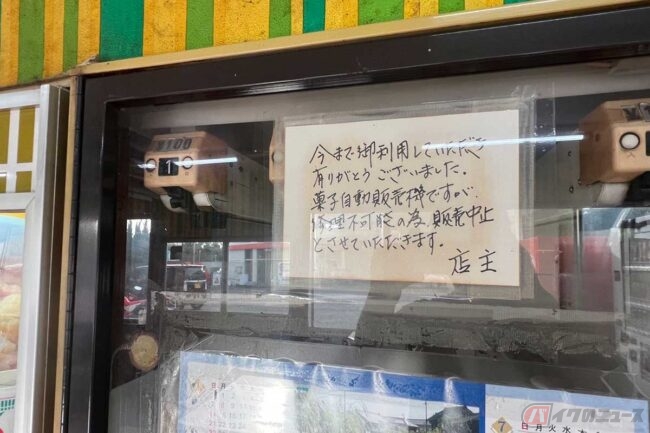 ¥100
1
今まで御利用していただき
有りがとうございました。
菓子自動販売機ですが、
修理不可能の為、販売中止
とさせていただきます。
店主
1
日 月
7
日 月 火 水 木
バイクのニュース